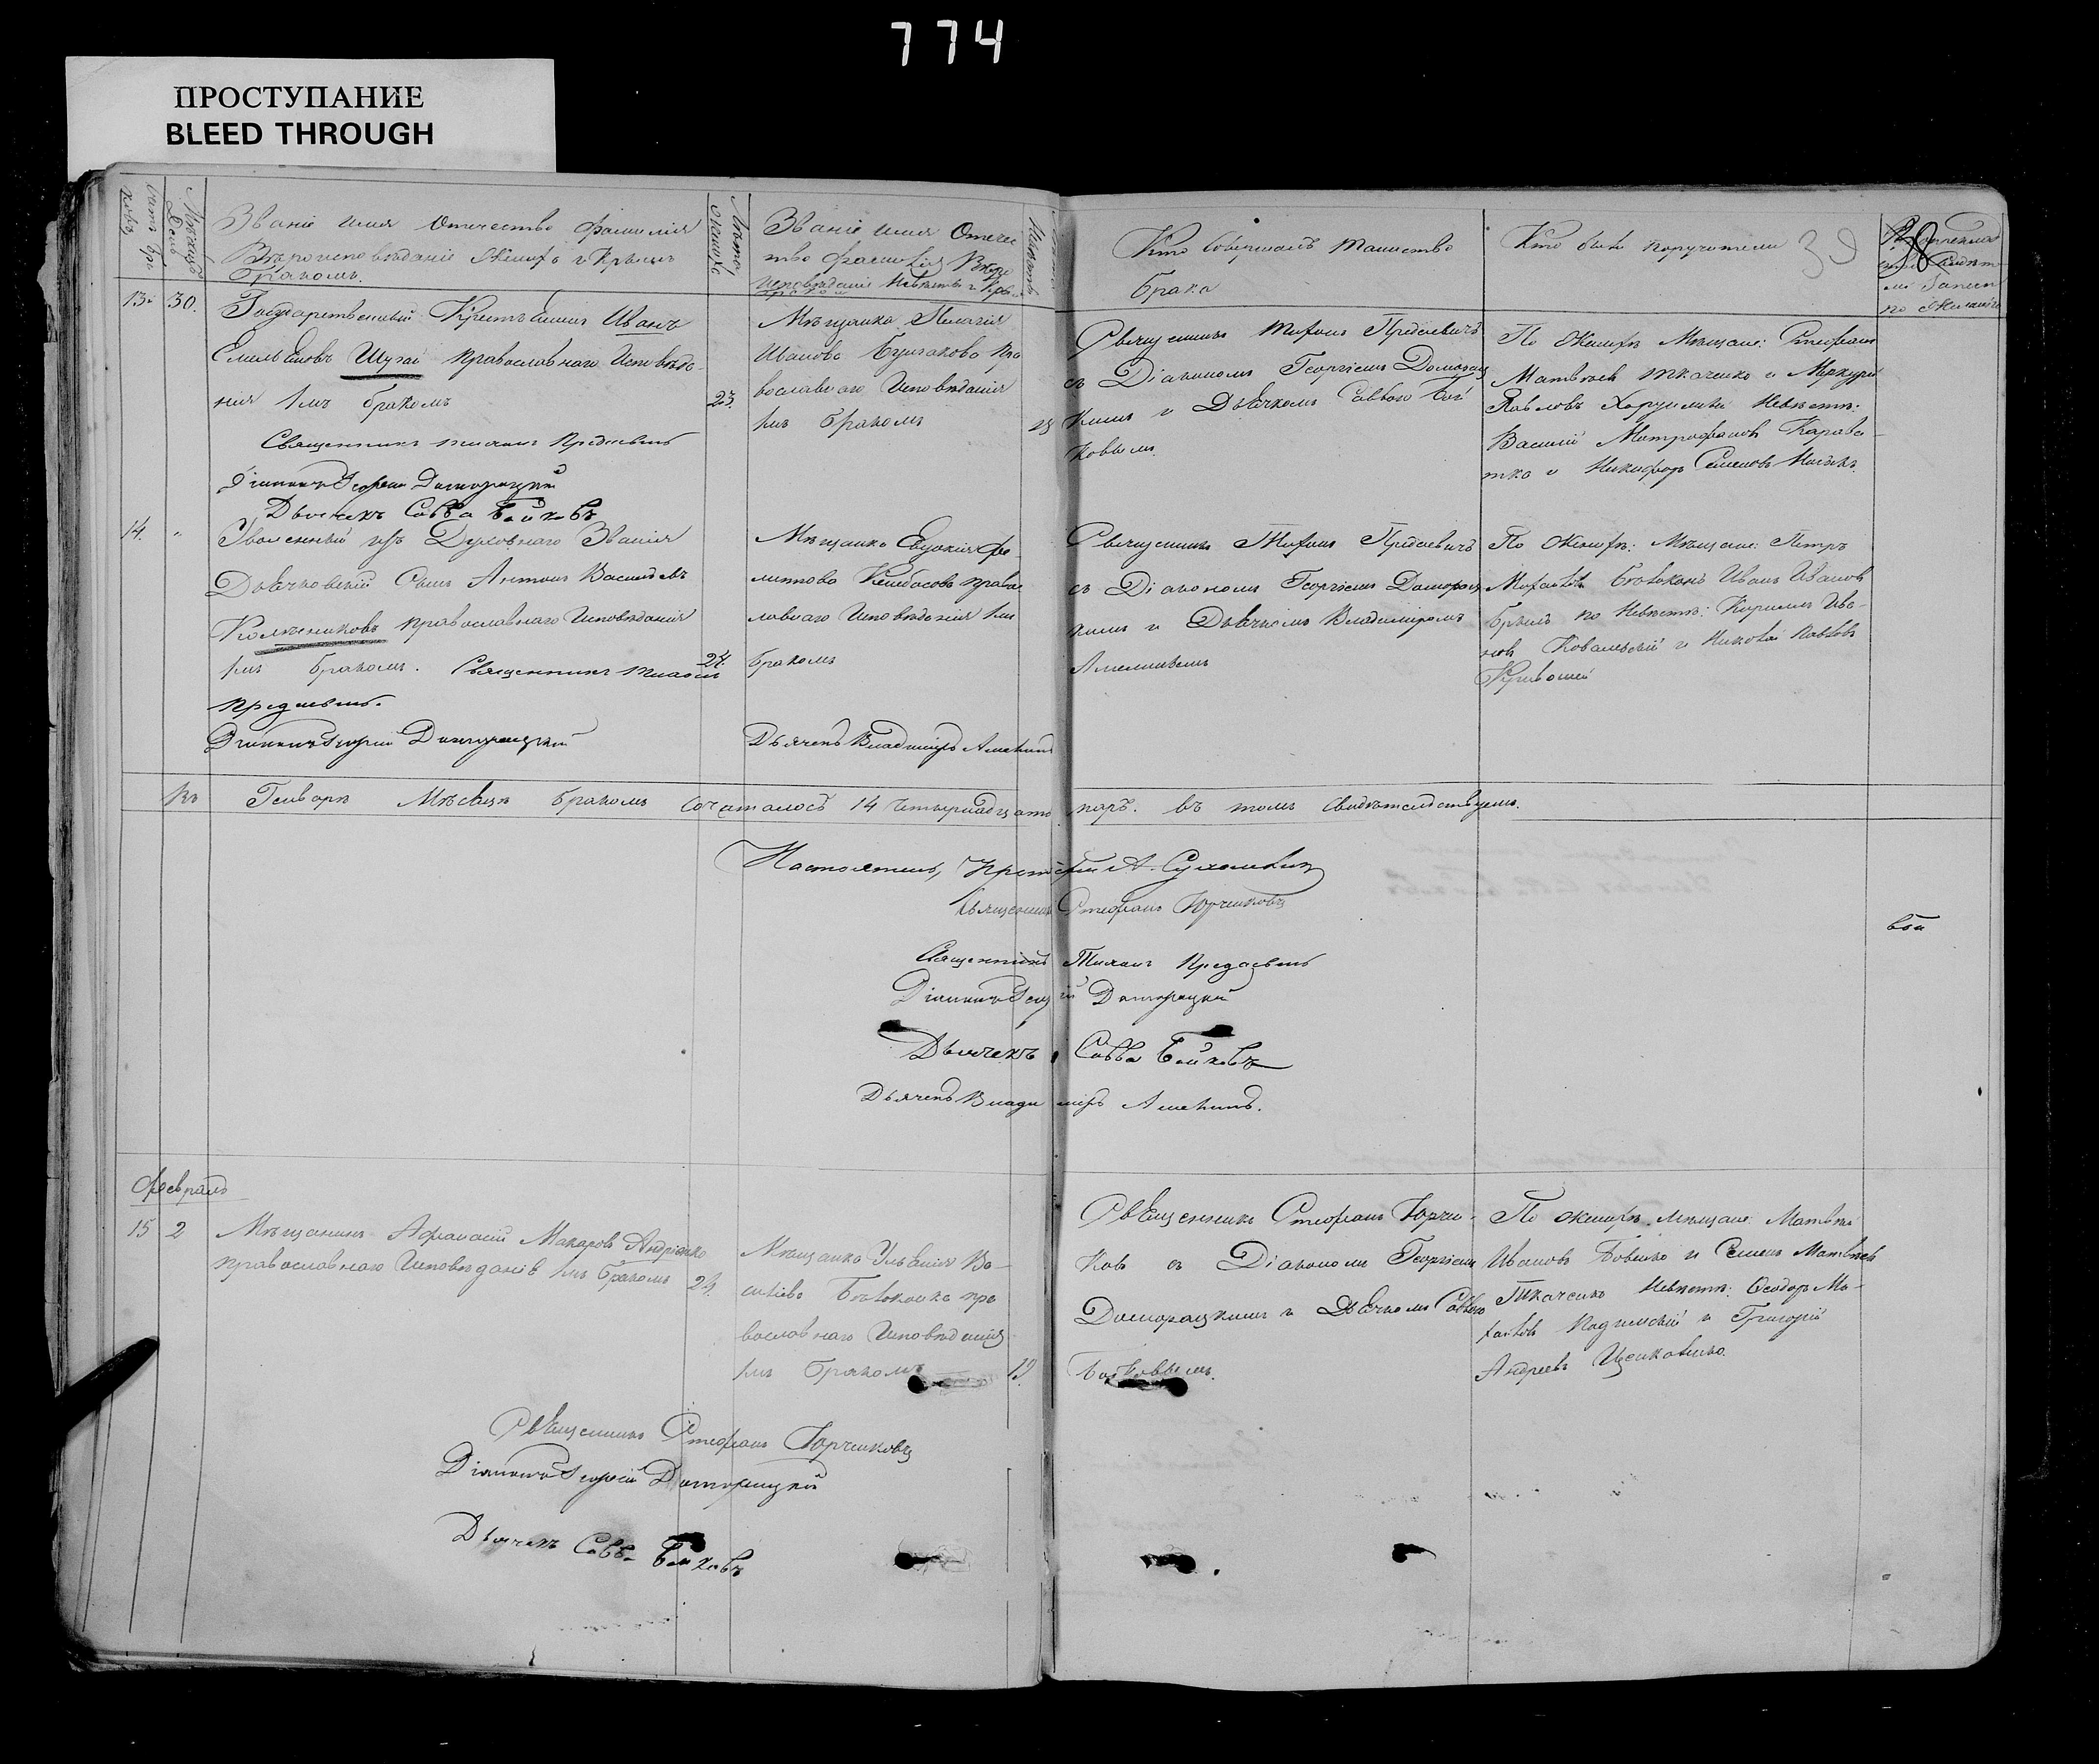 774
ПРОСТУПАНИЕ
BLEED THROUGH
Счетъ бра
ковъ
Мѣсяцъ
День
Званіе имя Отечество фамилія
Вѣроисповѣданіе Жениха и Крымъ
бракомъ.
Лѣта
Жениха
Званіе имя Отече
ство фамилія Вѣро
исповѣданіе Невѣсты и
бракомъ
Невѣсты
Кто Совершалъ таинство
брака
Кто были поручители
39
38
13. 30.
Государственный Крестьянинъ Иванъ
Емельяновъ Шугай православнаго Исповѣда-
нія 1мъ бракомъ 23.
Священникъ Тихонъ Предаевичъ
Діаконъ Георгій Доморацкій
Дьячекъ Савва Бойковъ
Мѣщанка Пелагія
Иванова Булгакова Пра
вославнаго Исповѣданія
1мъ бракомъ
Священникъ Тихонъ Предаевичъ
съ Діакономъ Георгіемъ Доморац
кимъ и Дьячкомъ Саввою Бой
ковымъ.
По Женихѣ Мѣщане: Стефанъ
Матвѣевъ Ткаченко и Меркурій
Павловъ Невѣстѣ:
Василій Митрофановъ Карава-
тка и Никифоръ Семеновъ
14. "
Уволенный изъ Духовнаго Званія
Дьячковскій Сынъ Антонъ Васильевъ
Колесниковъ православнаго Исповѣданія
1мъ бракомъ. Священникъ Тихонъ 24.
Предаевичъ.
Діаконъ Георгій Доморацкій
Мѣщанка Евдокія Фи
липпова православнаго Исповѣданія 1мъ
бракомъ
Дьячекъ Владиміръ Амелинъ
Священникъ Тихонъ Предаевичъ
съ Діакономъ Георгіемъ Доморац
кимъ и Дьячкомъ Владиміромъ
Амелинымъ
По Женихѣ: Мѣщане: Петръ
Бѣлоконь Иванъ Ивановъ
Брыль по Невѣстѣ: Кирилъ Ива-
новъ Ковалевскій и Николай Павловъ
Кривошей
Въ Генварѣ Мѣсяцѣ бракомъ сочеталось 14 четырнадцать паръ. въ томъ свидѣтельствуемъ.
Настоятель, Протоіерей А.
Священникъ Стефанъ Юрченковъ
Священникъ Тихонъ Предаевичъ
Діаконъ Георгій Доморацкій
Дьячекъ Савва Бойковъ
Дьячекъ Владиміръ Амелинъ.
Февраль
15 2
Мѣщанинъ Афанасій Макаровъ Андріенко
православнаго Исповѣданія 1мъ бракомъ 24.
Мѣщанка Ульянія Ва-
силіева Бѣлоконка пра
вославнаго Исповѣданія
1мъ бракомъ 19.
Священникъ Стефанъ Юрчен-
ковъ съ Діакономъ Георгіемъ
Доморацкимъ и Дьячкомъ Саввою
Бойковымъ.
По Женихѣ Мѣщане: Матвѣй
Ивановъ Бовенко и Семенъ Матвѣевъ
Ткаченко Невѣстѣ: Феодоръ Ми-
хайловъ и Григорій
Андреевъ
Священникъ Стефанъ Юрченковъ
Діаконъ Георгій Доморацкій
Дьячекъ Савва Бойковъ